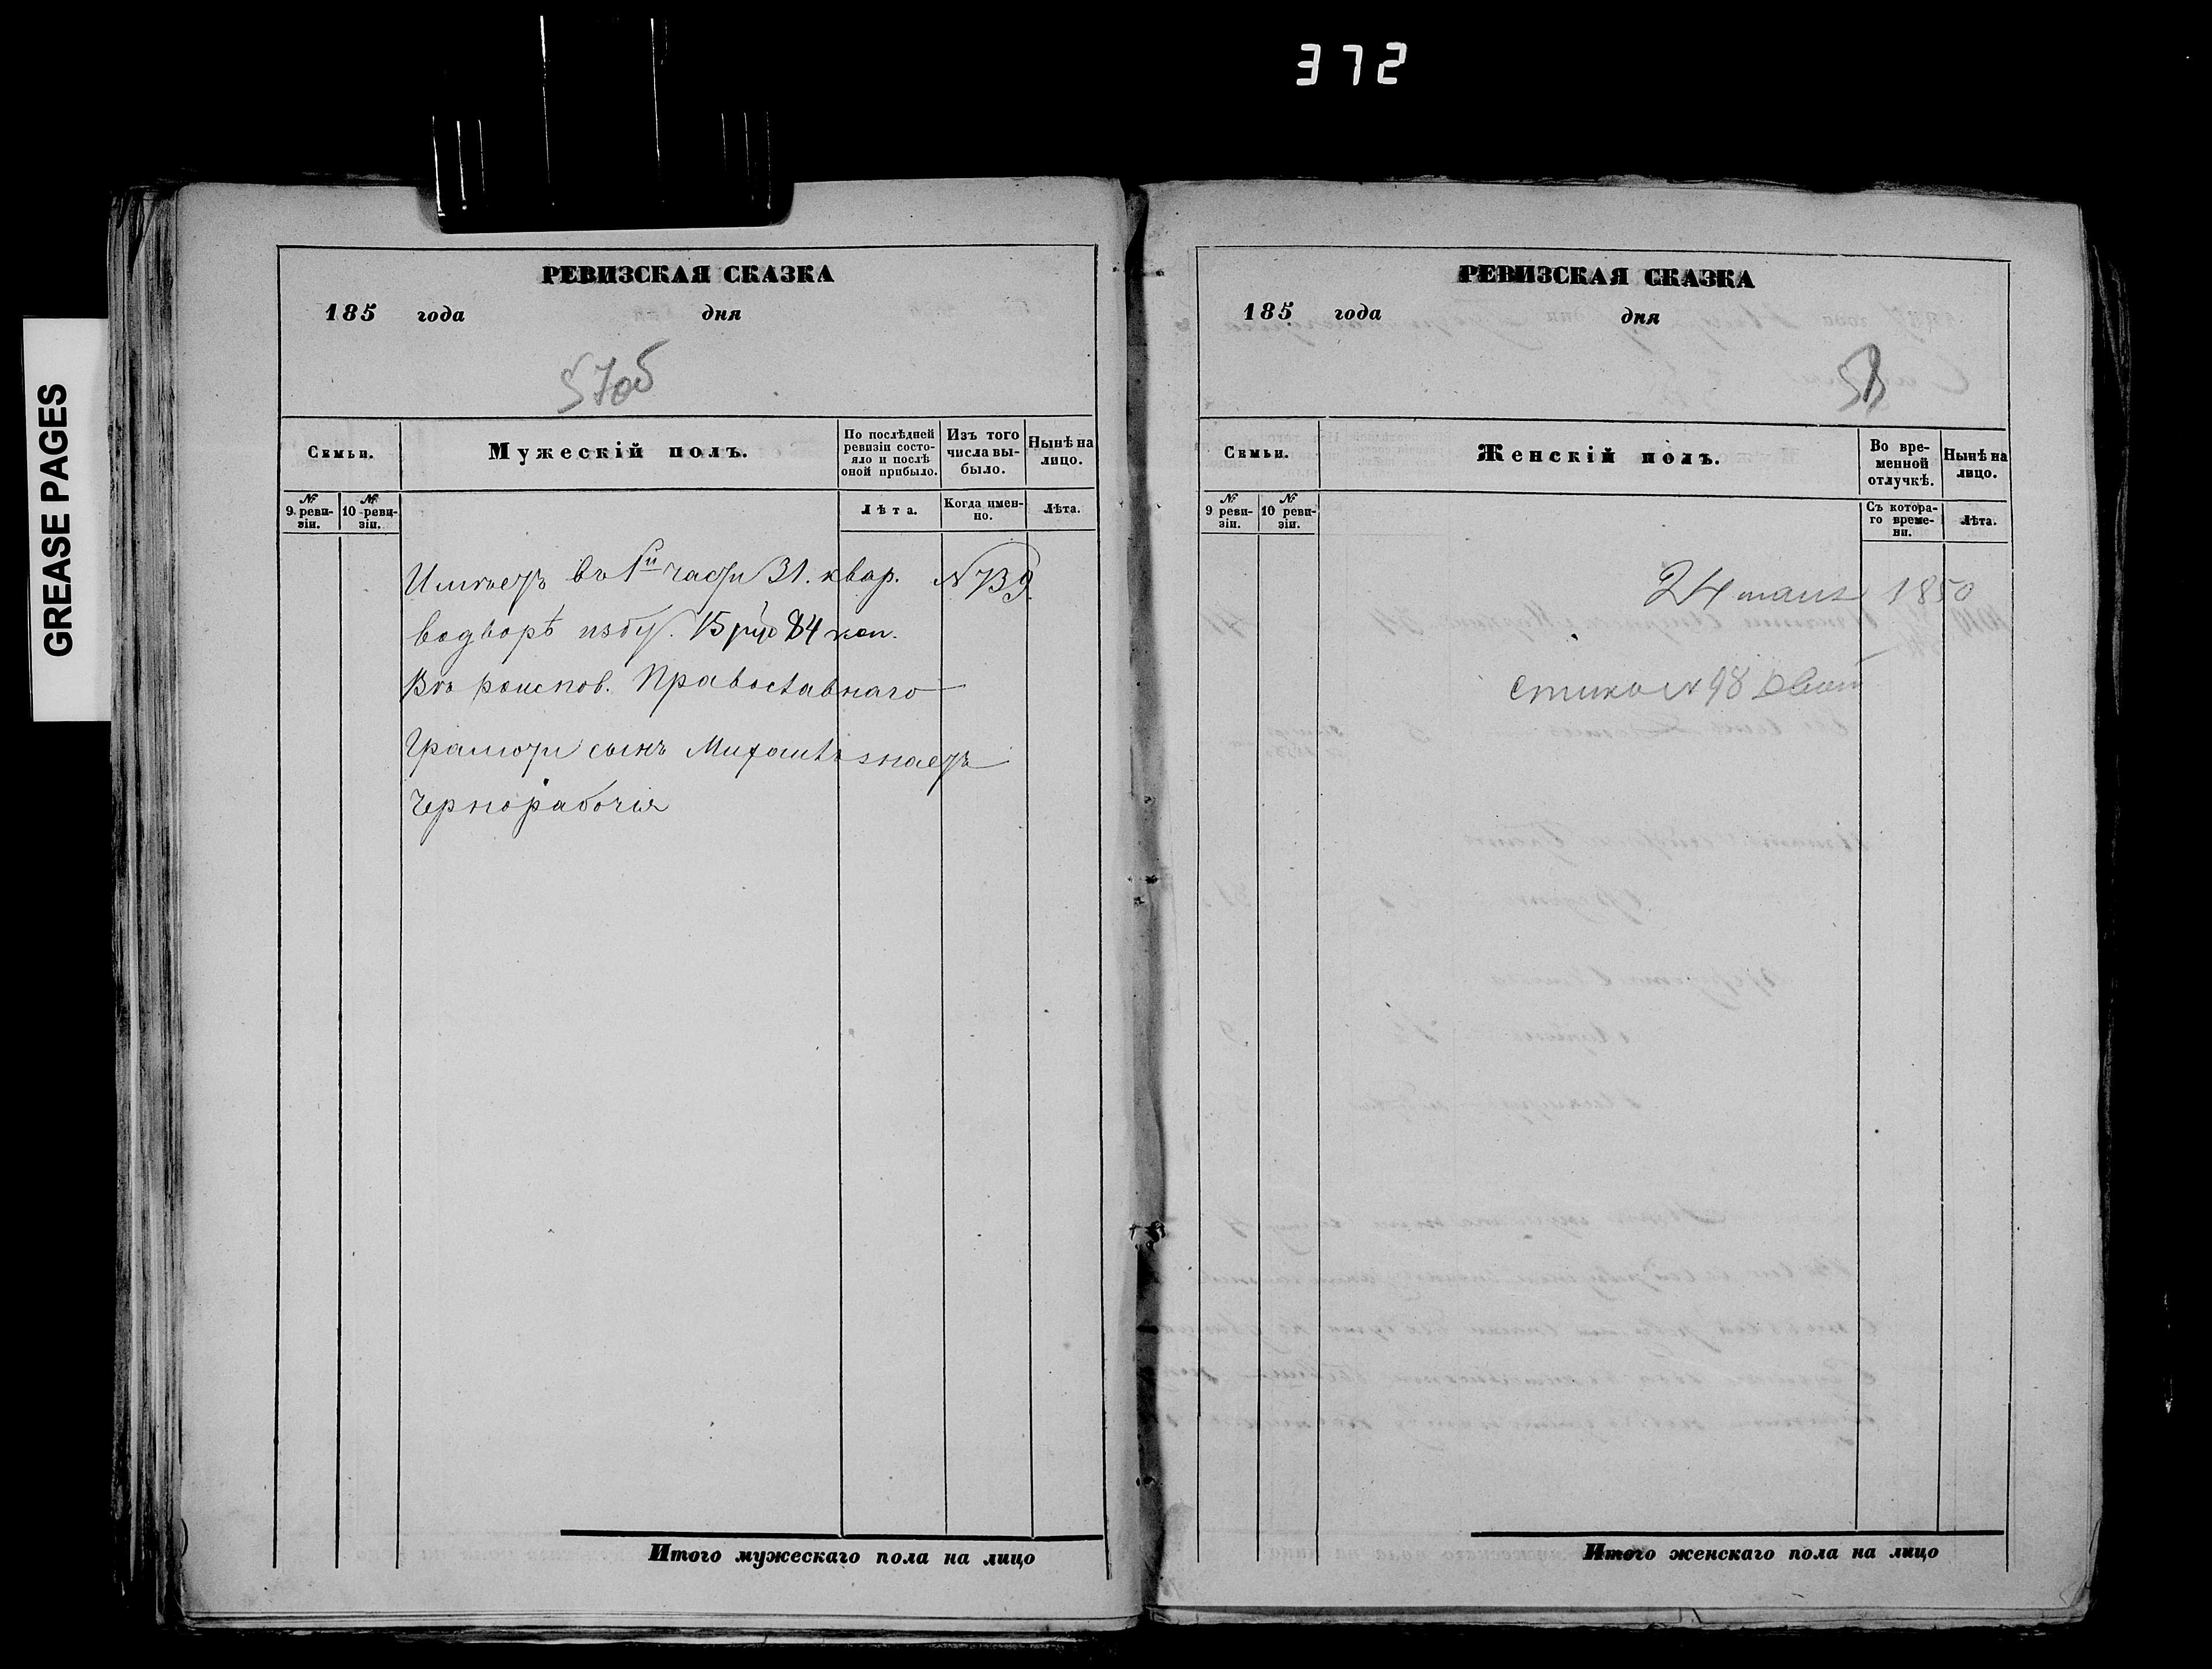 372
GREASE PAGES
РЕВИЗСКАЯ СКАЗКА
185 года дня
57об
Семьи.
Мужескій полъ.
По послѣдней ревизіи состояло и послѣ оной прибыло.
Изъ того числа выбыло.
Нынѣ на лицо.
№ 9 ревизіи.
№ 10 ревизіи.
Лѣта.
Когда именно.
Лѣта.
Имѣетъ въ 1й части 31. квар. N
водворѣ избу. 15 руб 84 коп.
Въ Православнаго
Грамоти сынъ знаетъ
Чернорабочія
Итого мужескаго пола на лицо
РЕВИЗСКАЯ СКАЗКА
185 года дня
58
Семьи.
Женскій полъ.
Во временной отлучкѣ.
Нынѣ на лицо.
№ 9 ревизіи.
№ 10 ревизіи.
Съ котораго времени.
Лѣта.
24 1850
N 98
Итого женскаго пола на лицо